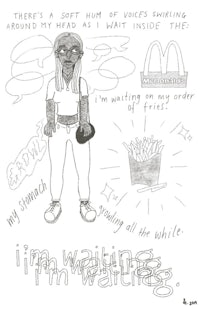 THERE'S A SOFT HUM OF VOICES SWIRLING
AROUND MY HEAD AS I WAIT INSIDE THE:
McDonald's
i'm waiting on my order
of fries!
my stomach
growling all the while.
i'm waiting
i'm waiting.